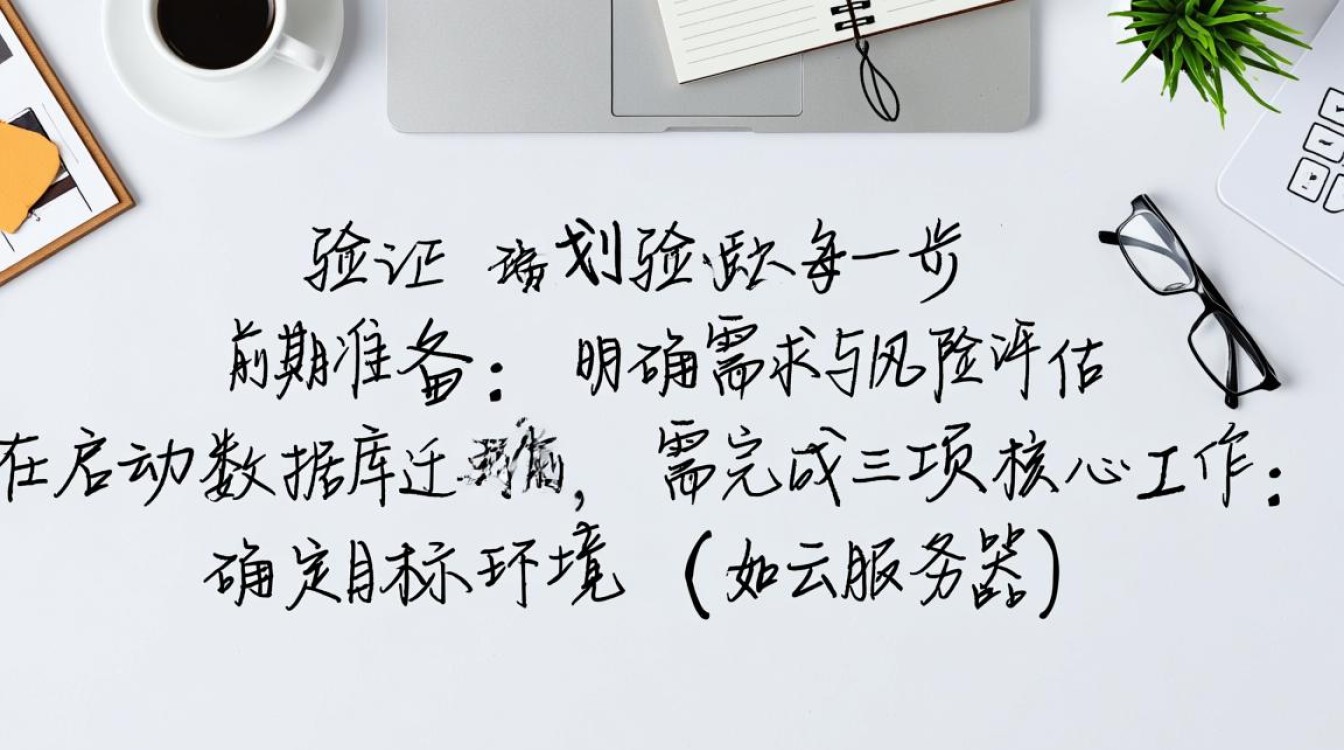 验证 划验每一步
前期准备：明确需求与风险评估
在启动数据库迁，需完成三项核心工作：
确定目标环境（如云服务器）